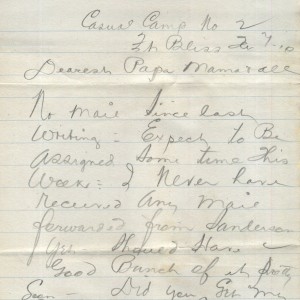 Casual Camp No 2
Ft Bliss
Dearest Papa Mama & all
No Mail Since last
Writing = Expect to Be
Assigned Some time This
Week = I Never have
received Any Mail
forwarded from Sanderson
Yet Should Have a
Good Bunch of it
Soon Did you Get My